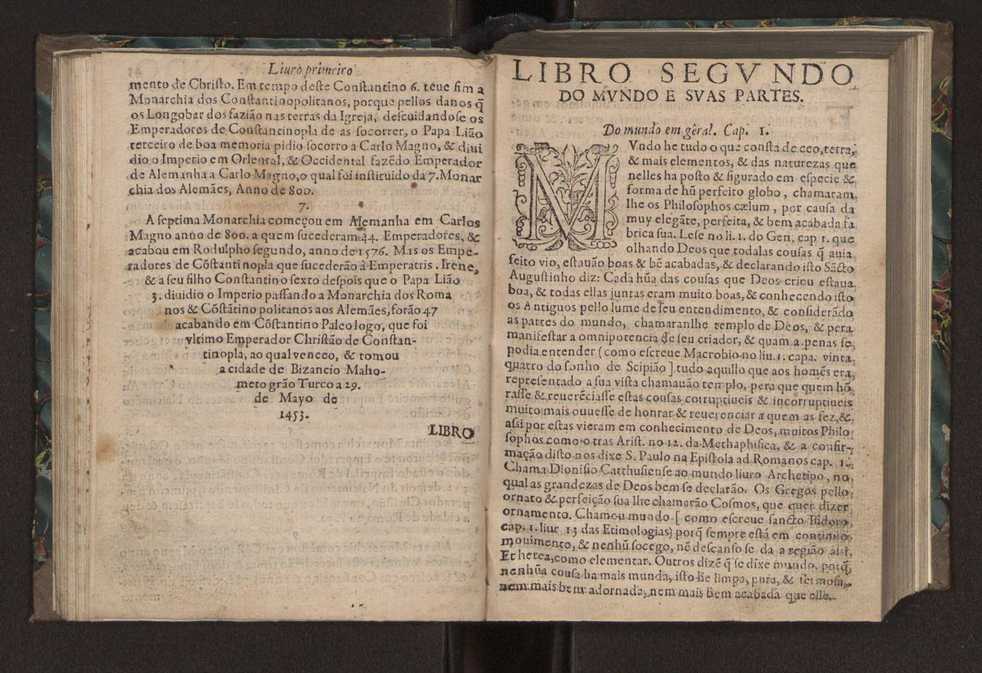 Liuro primeiro
mento de Christo. Em tempo deste Constantino 6. teue fim a
Monarchia dos Constantinopolitanos, porque pellos danos q̃
os Longobardos fazião nas terras da Igreja, descuidandose os
Emperadores de Constancinopla de as socorrer, o Papa Lião
terceiro de boa memoria pidio socorro a Carlo Magno, & diui
dio o Imperio em Oriental, & Occidental fazẽdo Emperador
de Alemanha a Carlo Magno, o qual foi instituido da 7. Monar
chia dos Alemães, Anno de 800.
7.
A septima Monarchia começou em Alemanha em Carlos
Magno anno de 800. a quem sucederam 44. Emperadores, &
acabou em Rodulpho segundo, anno de 1576. Mas os Empe-
radores de Cõstantinopla que sucederão â Emperatris. Irene,
& a seu filho Constantino sexto despois que o Papa Lião
3. diuidio o Imperio passando a Monarchia dos Roma
nos & Cõstãtino politanos aos Alemães, forão 47
acabando em Cõstantino Paleologo, que foi
vltimo Emperador Christão de Constan-
tinopla, ao qual venceo, & tomou
a cidade de Bizancio Maho-
meto grão Turco a 29.
de Mayo de
1453.
LIBRO
LIBRO SEGVNDO
DO MVNDO E SVAS PARTES.
Do mundo em gèral. Cap. 1.
MVndo he tudo o que consta de ceo, terra,
& mais elementos, & das naturezas que
nelles ha posto & figurado em especie &
forma de hũ perfeito globo, chamaram
lhe os Philosophos cælum, por causa da
muy elegãte, perfeita, & bem acabada fa
brica sua. Lese no li. 1. do Gen. cap 1. que
olhando Deos que todalas cousas q̃ auia
feito vio, estauão boas & bẽ acabadas, & declarando isto Sãcto
Augustinho diz: Cada hũa das cousas que Deos criou estaua
boa, & todas ellas juntas eram muito boas, & conhecendo isto
os Antiguos pello lume de seu entendimento, & considerãdo
as partes do mundo, chamaranlhe templo de Deos, & pera
manifestar a omnipotencia de seu criador, & quam a penas se
podia entender (como escreue Macrobio no liu. 1. capa. vinta
quatro do sonho de Scipião] tudo aquillo que aos homẽs era
representado a sua vista chamauão templo, pera que quem hõ
rasse & reuerẽciasse estas cousas corruptiueis & incorruptiueis
muito mais ouuesse de honrar & reuerenciar a quem as fez, &
assi por estas vieram em conhecimento de Deos, muitos Philo
sophos como otras Arist. no 12. da Methaphisica, & a confir-
mação disto nos dixe S. Paulo na Epistola ad Romanos cap. 1.
Chama Dionisio Catthusiense ao mundo liuro Archetipo, no
qual as grandezas de Deos bem se declarão. Os Gregos pello
ornato & perfeição sua lhe chamarão Cosmos, que quer dizer
ornamento. Chamou mundo [ como escreue sancto Isidoro
cap. 1. liur 13 das Etimologias) porq̃ sempre està em continuo
mouimento, & nenhũ socego, nẽ descanso se da a região assi
Etherea, como elementar. Outros dizẽ q̃ se dixe mundo, porq̃
nenhũa cousa ha mais munda, isto he limpa, pura, & fermosa,
nem mais bem adornada, nem mais bem acabada que elle.